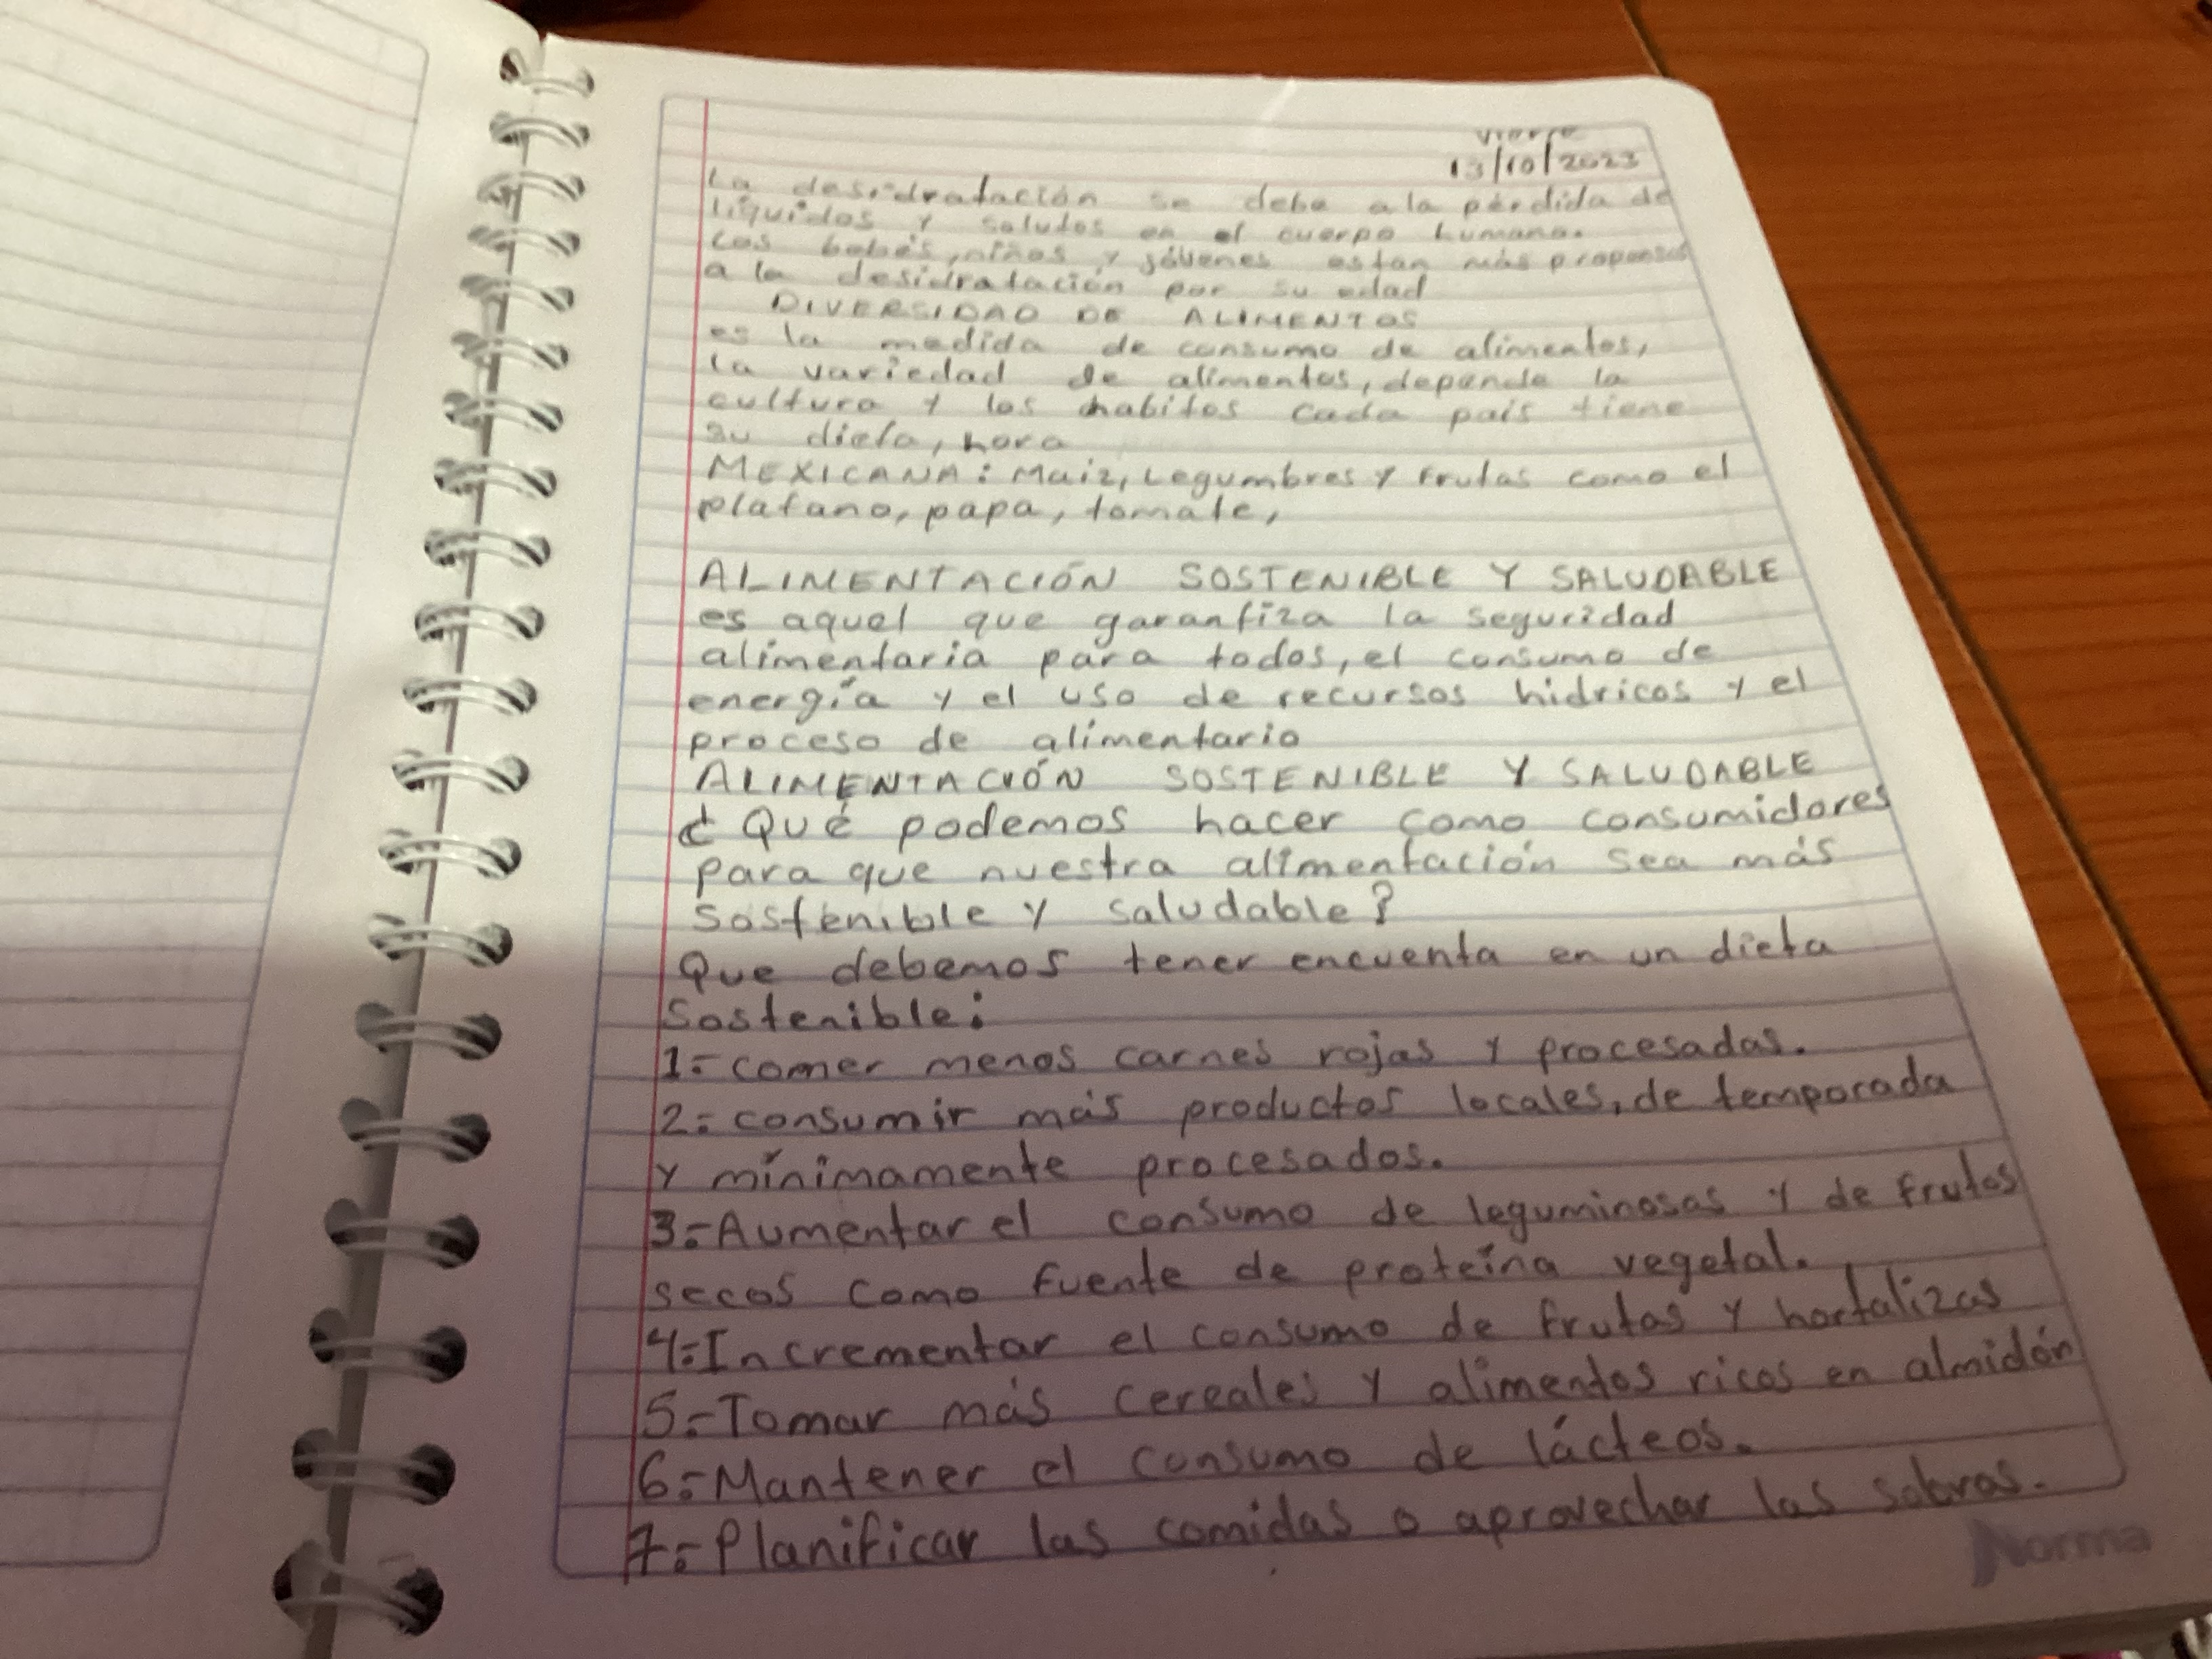 13/10/2023
La desidratación se debe a la pérdida de
líquidos y solutos en el cuerpo humano.
Los bebés, niños y jóvenes estan más propensos
a la desidratación por su edad
DIVERSIDAD DE ALIMENTOS
es la medida de consumo de alimentos,
la variedad de alimentos, depende la
cultura y los habitos cada país tiene
su dieta, hora
MEXICANA: Maiz, Legumbres y frutas como el
platano, papa, tomate,
ALIMENTACIÓN SOSTENIBLE Y SALUDABLE
es aquel que garantiza la seguridad
alimentaria para todos, el consumo de
energía y el uso de recursos hidricos y el
proceso de alimentario
ALIMENTACIÓN SOSTENIBLE Y SALUDABLE
¿Qué podemos hacer como consumidores
para que nuestra alimentación sea más
sostenible y saludable?
Que debemos tener encuenta en un dieta
Sostenible:
1.- comer menos carnes rojas y procesadas.
2.- consumir más productos locales, de temporada
y mínimamente procesados.
3.- Aumentar el consumo de leguminosas y de frutos
secos como fuente de proteína vegetal.
4.- Incrementar el consumo de frutas y hortalizas
5.- Tomar más cereales y alimentos ricos en almidón
6.- Mantener el consumo de lácteos.
7.- Planificar las comidas o aprovechar las sobras.
Norma